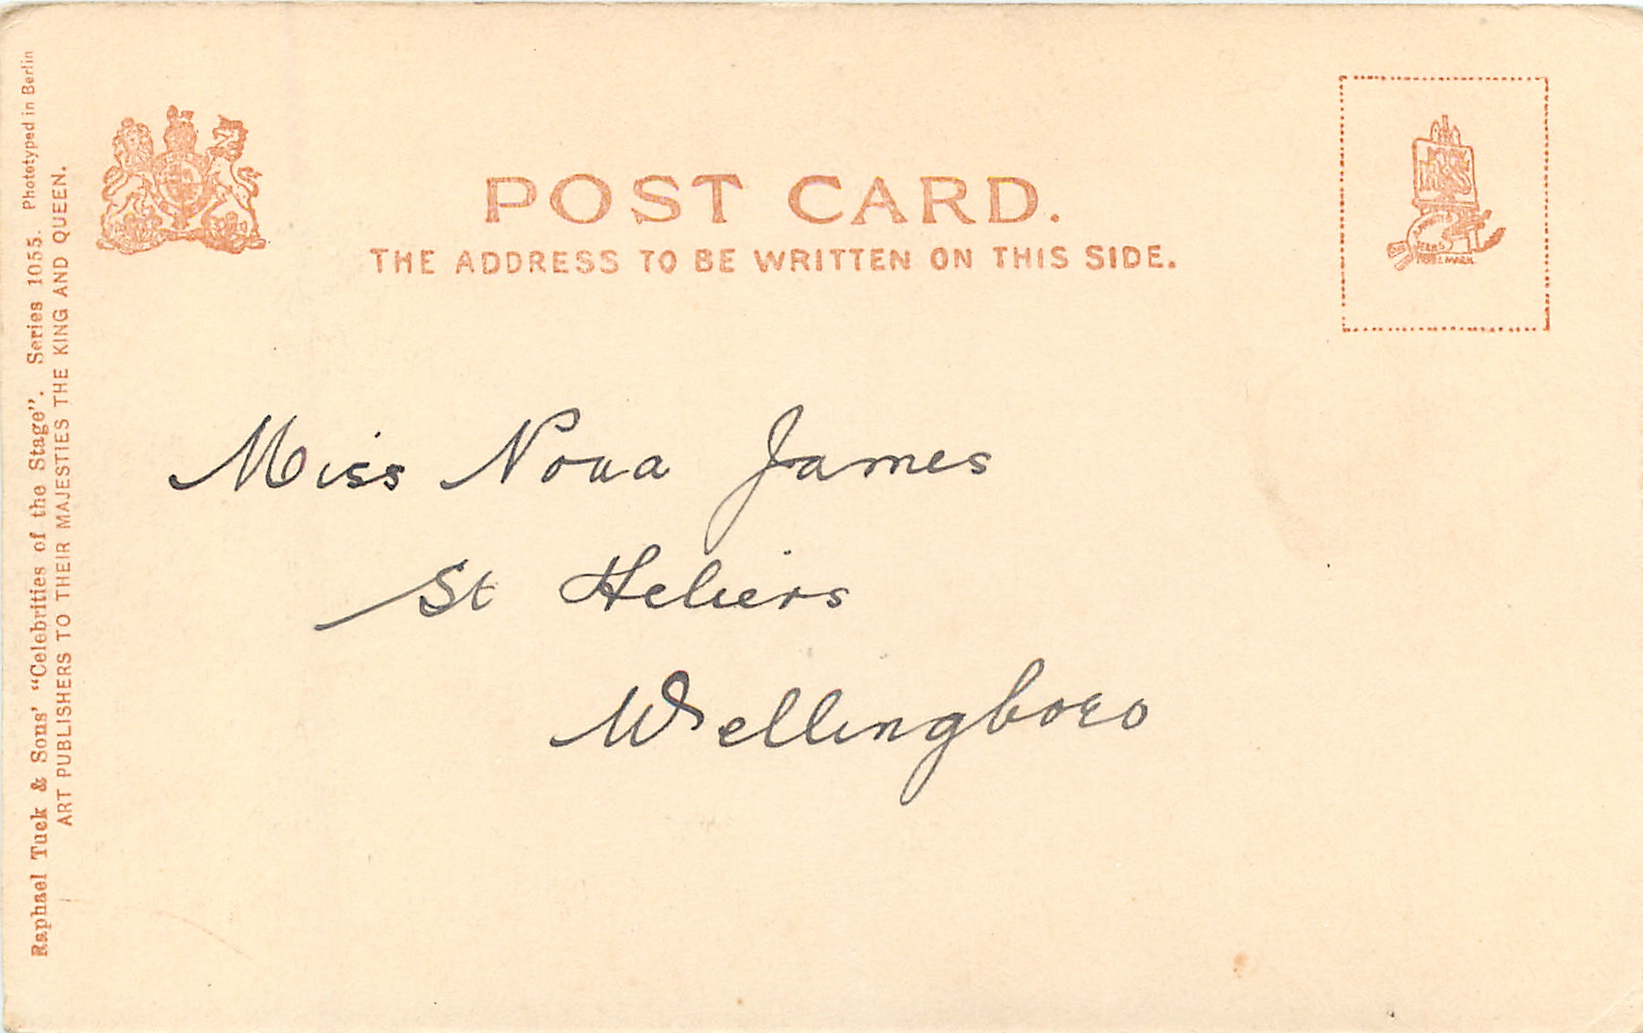 POST CARD.
THE ADDRESS TO BE WRITTEN ON THIS SIDE.
Raphael Tuck & Sons' "Celebrities of the Stage". Series 1055. Phototyped in Berlin
ART PUBLISHERS TO THEIR MAJESTIES THE KING AND QUEEN.
Miss Nova James
St Heliers
Wellingboro